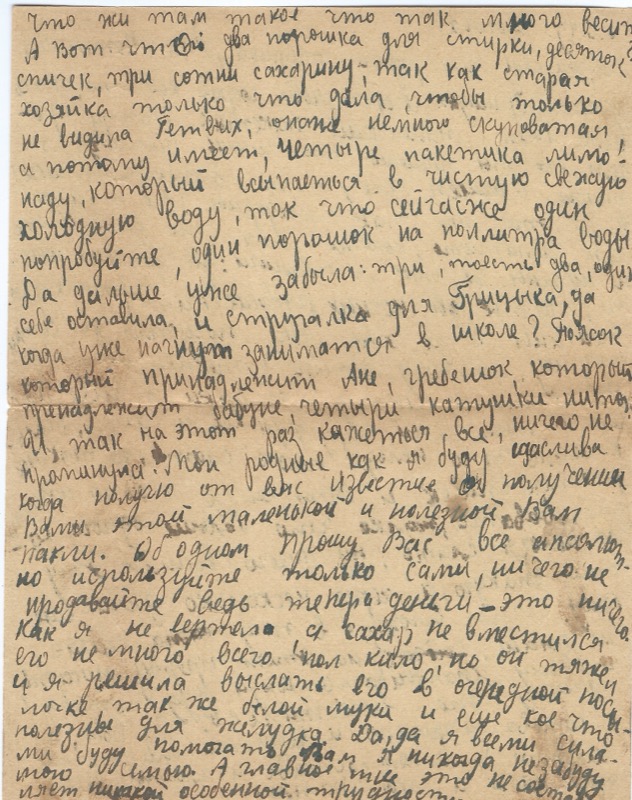 что жи там такое что так много весит?
А вот что два порошка для стирки, десяток
спичек, три сотни сахарину, так как старая
хозяйка только что дала, чтобы только
не видила Гетвих, онана немного скуповатая
а потому имеет, четыре пакетика лимо!
наду, который всыпаеться в чистую свежую
холодную воду, так что сейчасже один
попробуйте, один порошок на поллитра воды
Да дальше уже забыла: три, тоесть два, один
себе оставила, и стругалка для Грицька, да
когда уже начнут заниматся в школе? Поясок
который принадлежит Ане, гребешок, который
пренадлежит бабуне, четыри катушки ниток
И, так на этот раз кажеться всё, ничего не
проминула. Мои родные как я буду сдаслива
когда получю от вас известие о получении
Вами этой маленькой и полезной Вам
пакли. Об одном прошу Вас все апсалют-
но используйте только сами, ничего не
продавайте ведь теперь деньги - это ничего.
Как я не вертела а сахар не вместился
его не много всего "пол кило", но он тяжел
и я решила выслать его в очередной посы-
лочке так же белой муки и еще кое что
полезные для желудка. Да, да я всеми сила-
ми буду помогать Вам я никогда не забуду
мою семью. А главное мне это не состо-
иляет никакой особенной трудности